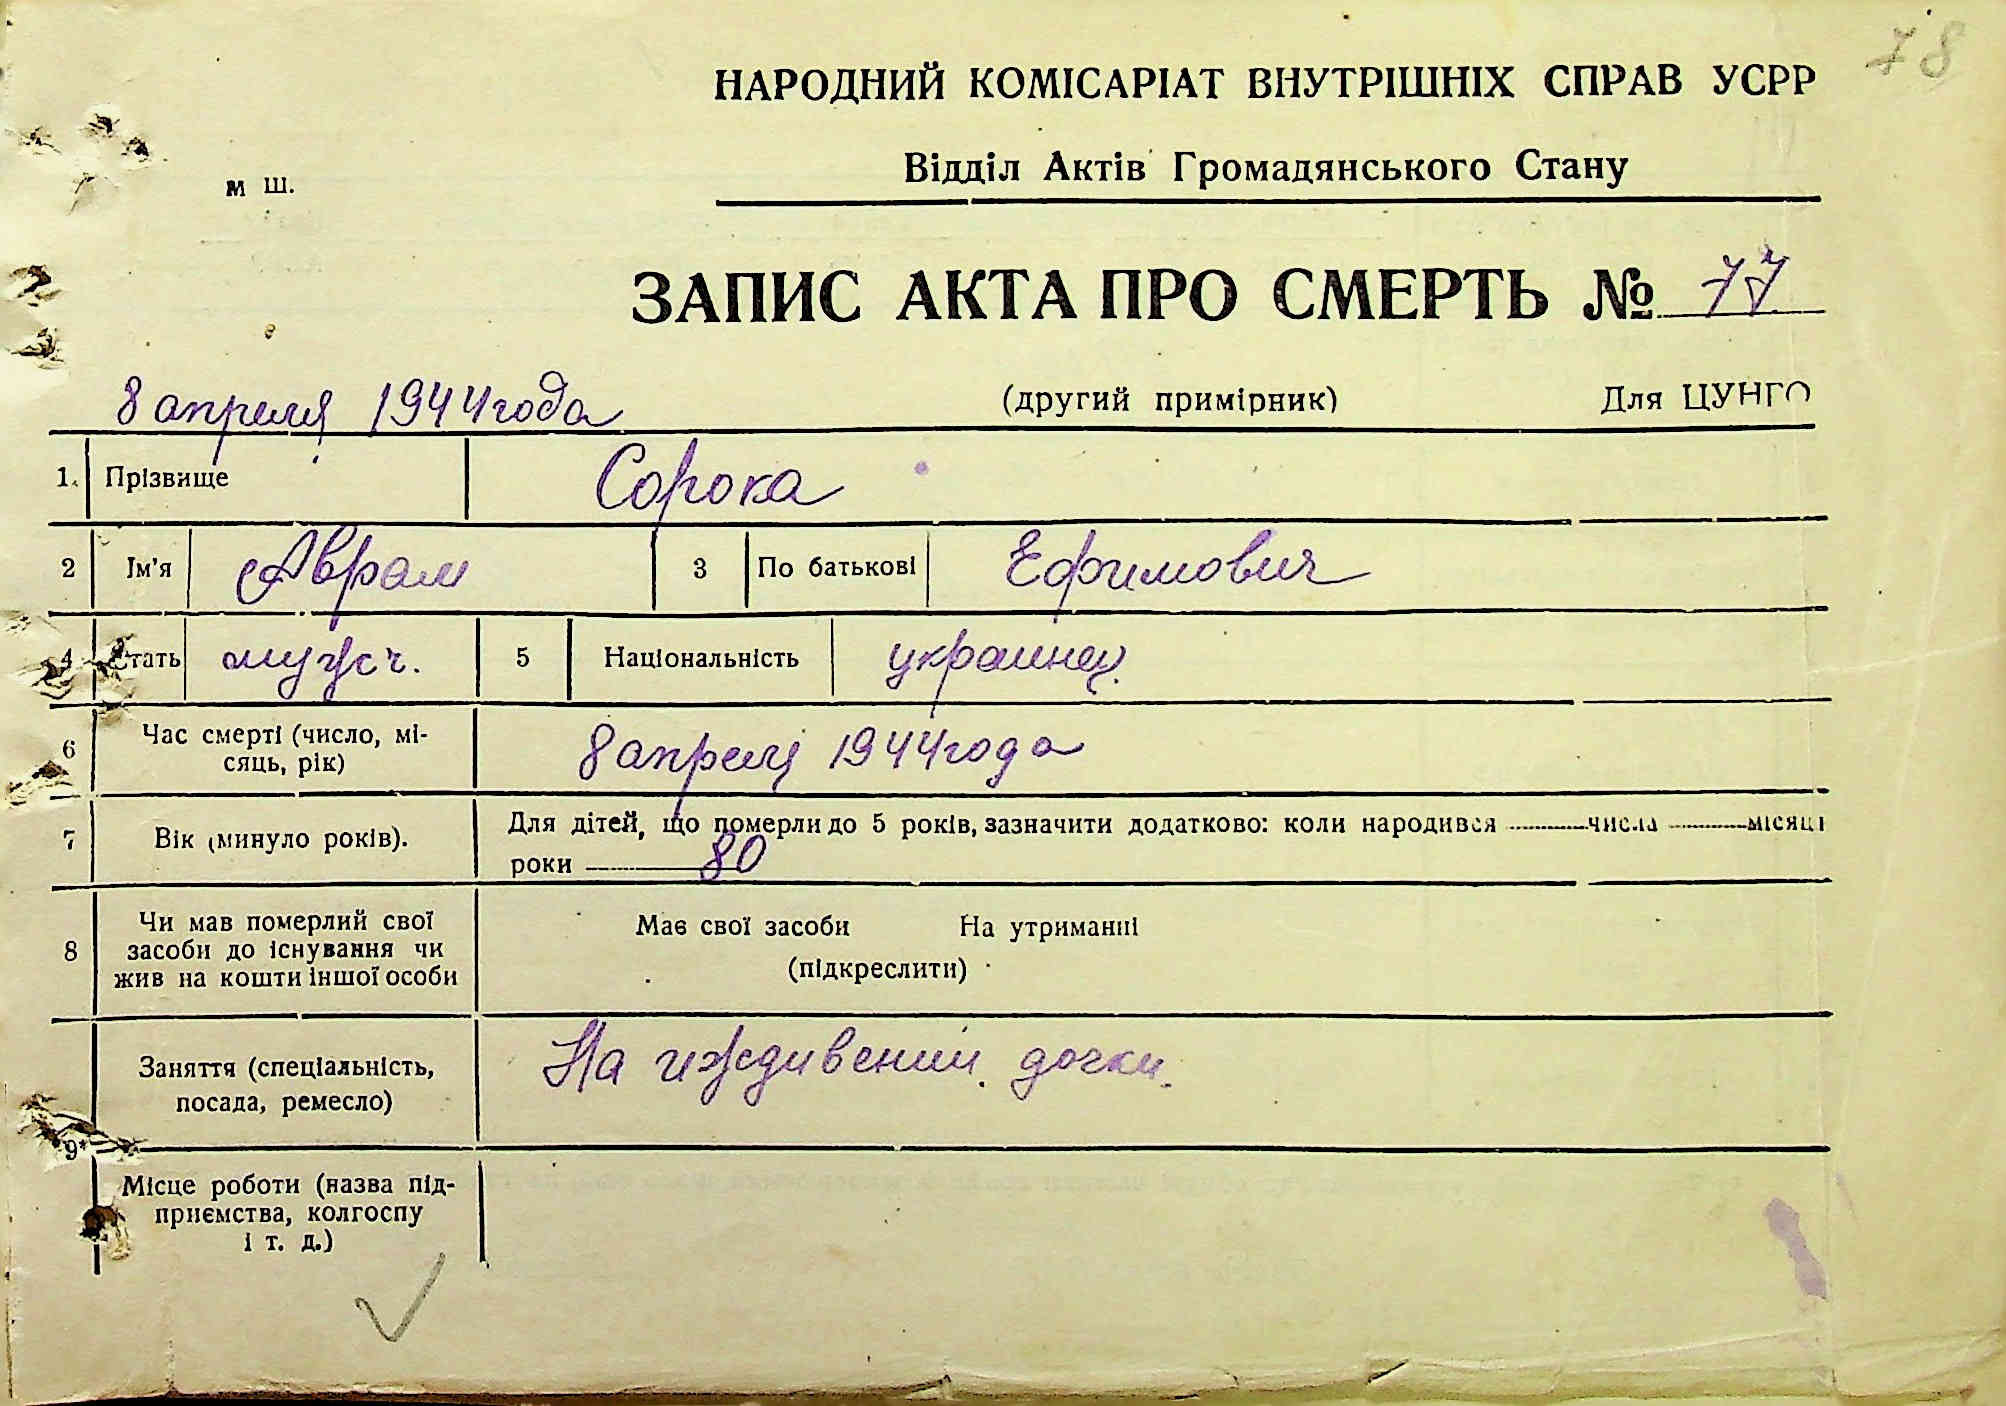 78
НАРОДНИЙ КОМІСАРІАТ ВНУТРІШНІХ СПРАВ УСРР
Відділ Актів Громадянського Стану
м ш.
ЗАПИС АКТА ПРО СМЕРТЬ № 77
8 апреля 1944 года (другий примірник) Для ЦУНГО
1. Прізвище Сорока
2 Ім'я Аврам 3 По батькові Ефимович
4 Стать мужсч. 5 Національність украинец.
6 Час смерті (число, мі-
сяць, рік) 8 апреля 1944 года
7 Вік (минуло років). Для дітей, що померли до 5 років, зазначити додатково: коли народився числа місяці
роки 80
8 Чи мав померлий свої
засоби до існування чи
жив на кошти іншої особи
Має свої засоби На утриманні
(підкреслити)
Заняття (спеціальність,
посада, ремесло) На иждивении дочки.
9
Місце роботи (назва під-
приємства, колгоспу
і т. д.)